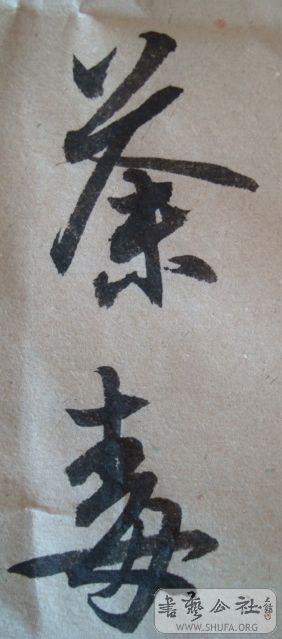 荼毒
書藝公社
WWW.SHUFA.ORG